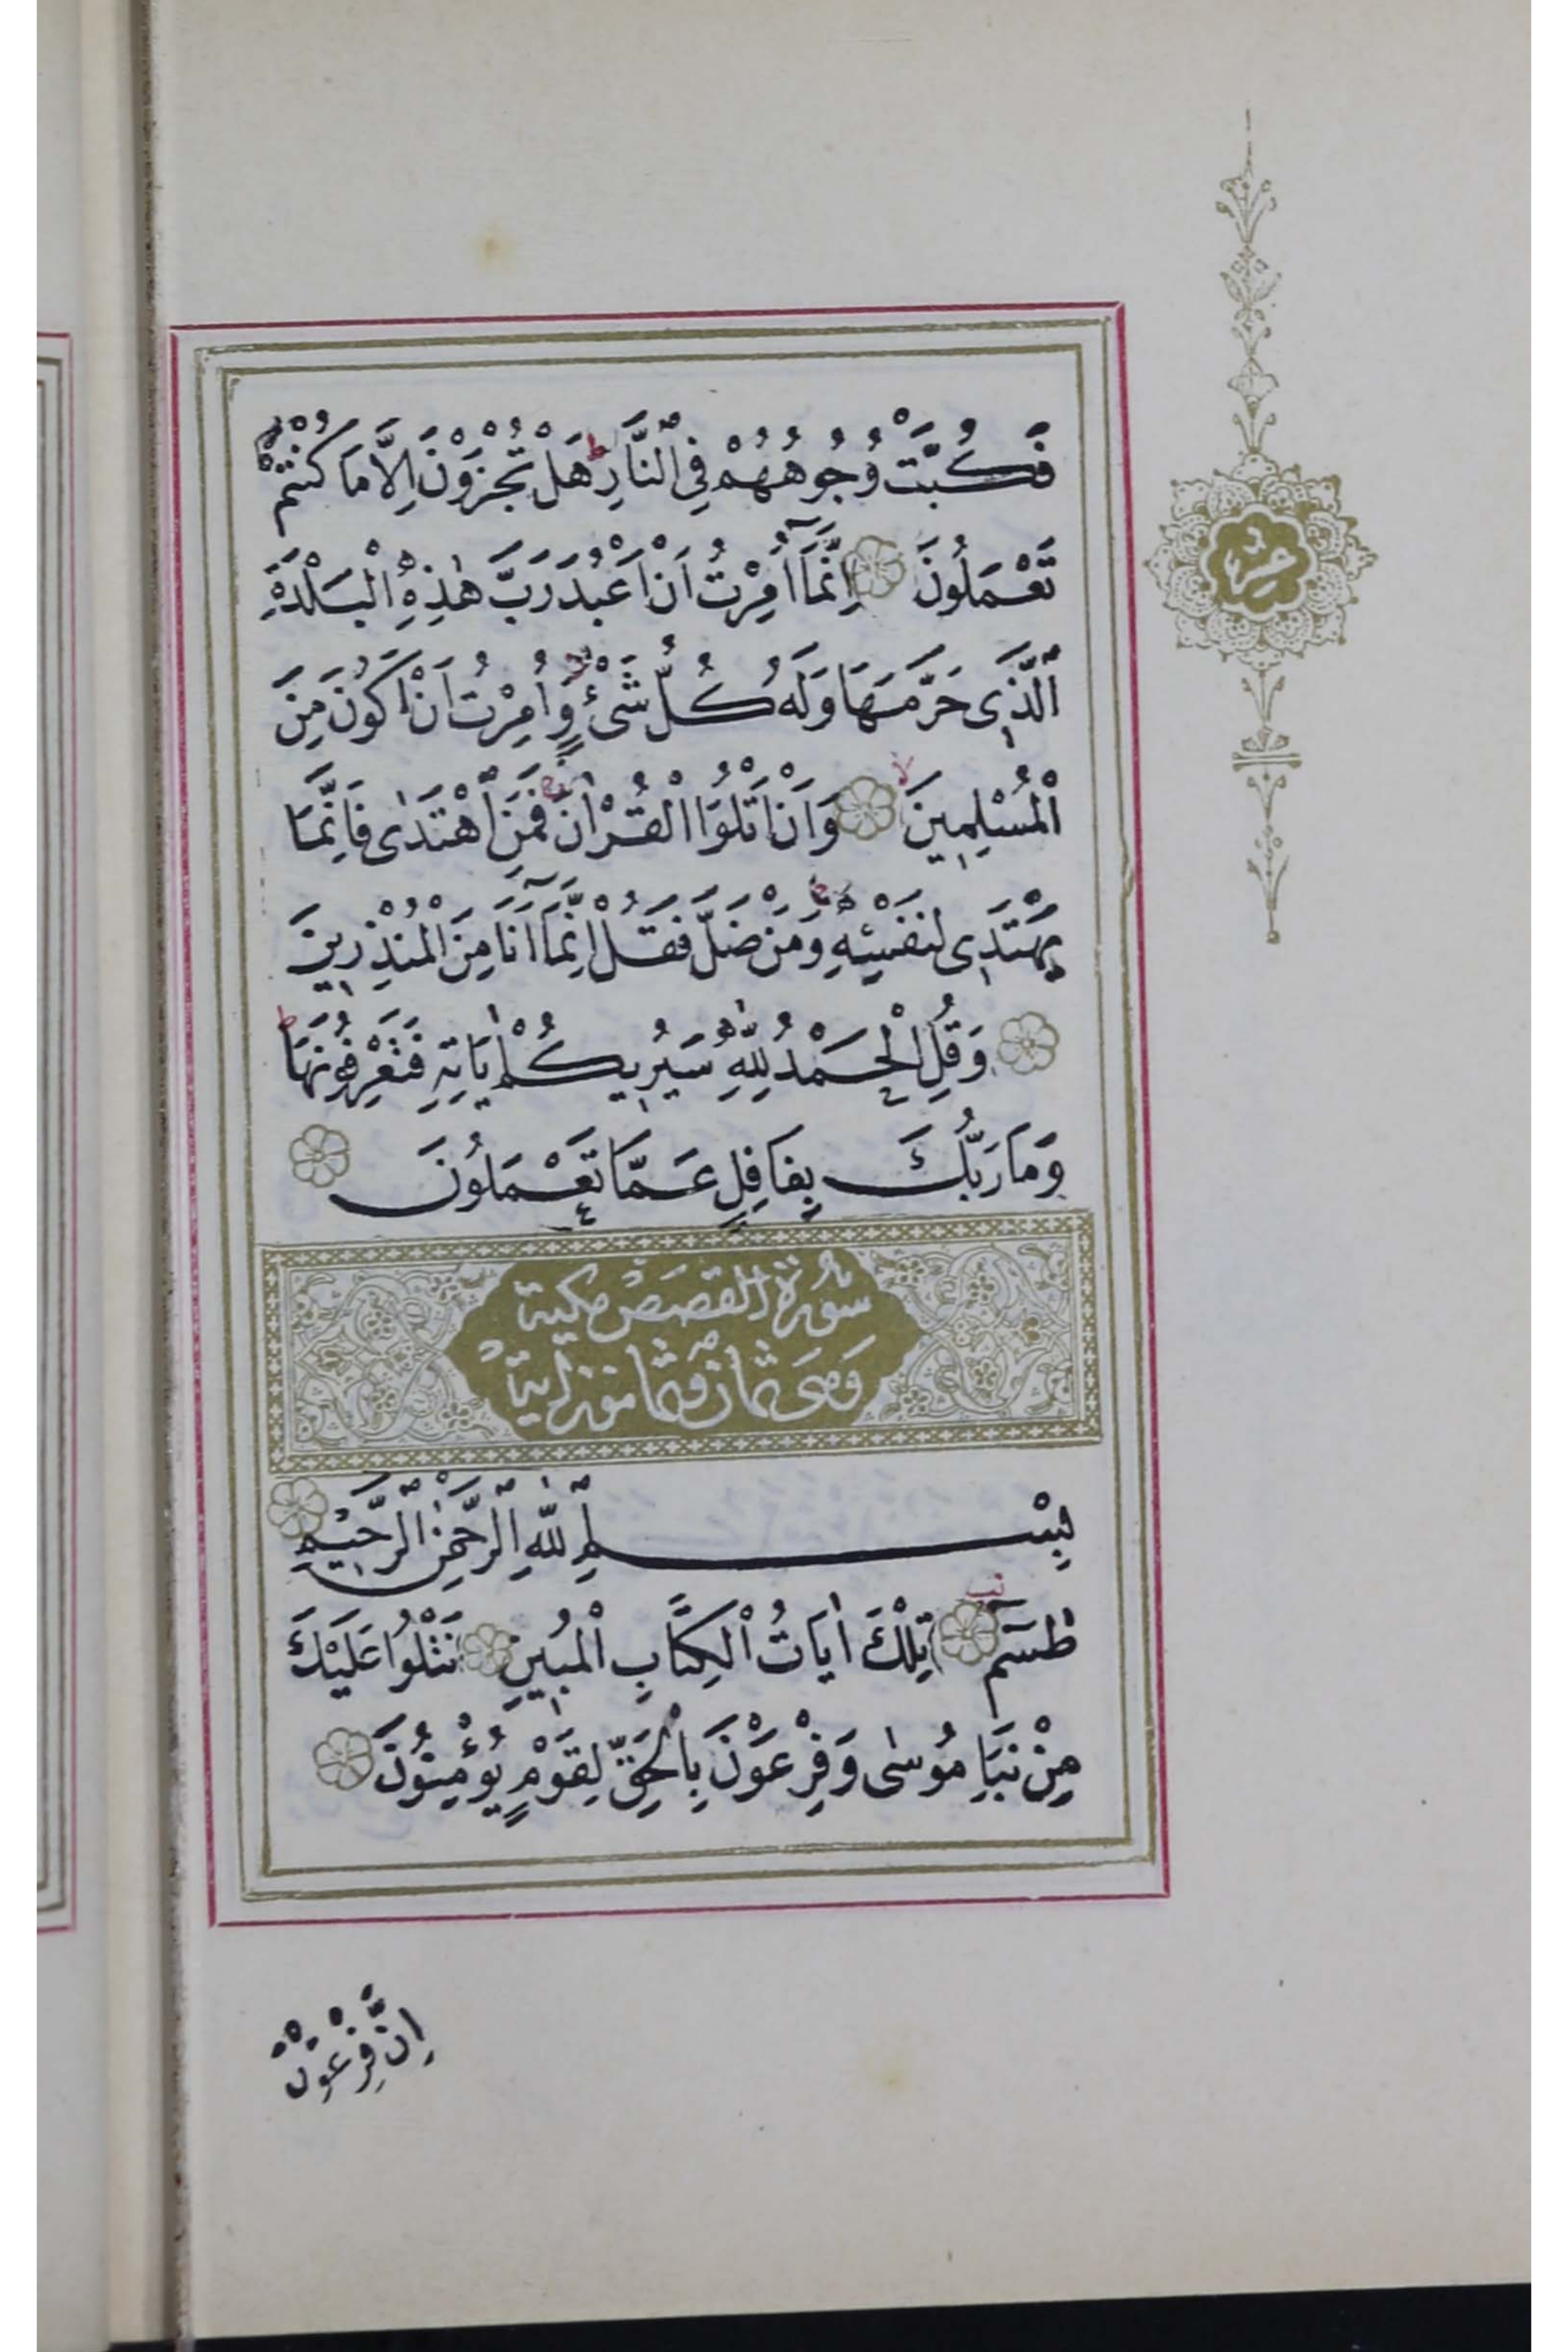 فَكُبَّتْ وُجُوهُهُمْ فِي النَّارِ هَلْ تُجْزَوْنَ اِلَّا مَا كُنْتُمْ
تَعْمَلُونَ اِنَّمَٓا اُمِرْتُ اَنْ اَعْبُدَ رَبَّ هٰذِهِ الْبَلْدَةِ
الَّذ۪ي حَرَّمَهَا وَلَهُ كُلُّ شَيْءٍ وَاُمِرْتُ اَنْ اَكُونَ مِنَ
الْمُسْلِم۪ينَ وَاَنْ اَتْلُوَا الْقُرْاٰنَ فَمَنِ اهْتَدٰى فَاِنَّمَا
يَهْتَد۪ي لِنَفْسِه۪ وَمَنْ ضَلَّ فَقُلْ اِنَّمَٓا اَنَا مِنَ الْمُنْذِر۪ينَ
وَقُلِ الْحَمْدُ لِلّٰهِ سَيُر۪يكُمْ اٰيَاتِه۪ فَتَعْرِفُونَهَا
وَمَا رَبُّكَ بِغَافِلٍ عَمَّا تَعْمَلُونَ
سُورَةُ الْقَصَصِ مَكِّيَّةٌ
وَهِيَ ثَمَانٌ وَثَمَانُونَ اٰيَةً
بِسْمِ اللّٰهِ الرَّحْمٰنِ الرَّح۪يمِ
طٰسٓمٓ تِلْكَ اٰيَاتُ الْكِتَابِ الْمُب۪ينِ نَتْلُوا عَلَيْكَ
مِنْ نَبَأِ مُوسٰى وَفِرْعَوْنَ بِالْحَقِّ لِقَوْمٍ يُؤْمِنُونَ
اِنَّ فِرْعَوْنَ